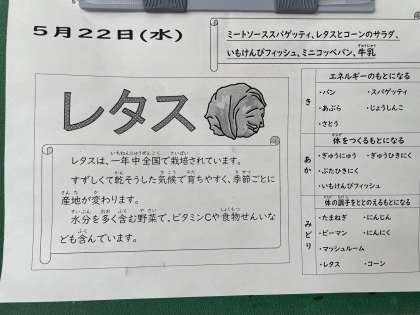 5月22日(水)
ミートソーススパゲッティ、レタスとコーンのサラダ、
いもけんぴフィッシュ、ミニコッペパン、牛乳
レタス
レタスは、一年中全国で栽培されています。
すずしくて乾そうした気候で育ちやすく、季節ごとに
産地が変わります。
水分を多く含む野菜で、ビタミンCや食物せんいな
ども含んでいます。
エネルギーのもとになる
き
・パン ・スパゲティ
・あぶら ・じょうしんこ
・さとう
体をつくるもとになる
あか
・ぎゅうにゅう ・ぎゅうひきにく
・ぶたひきにく
・いもけんぴフィッシュ
体の調子をととのえるもとになる
みどり
・たまねぎ ・にんじん
・ピーマン ・にんにく
・マッシュルーム
・レタス ・コーン